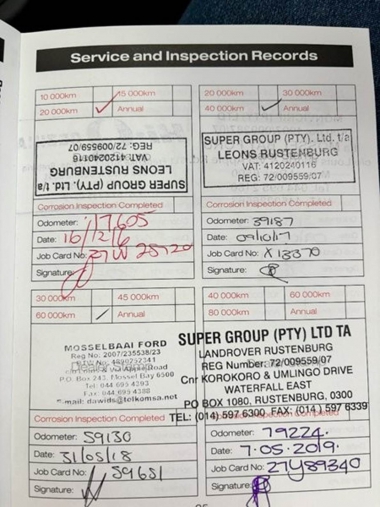 Service and Inspection Records
10 000km 15 000km
20 000km Annual
SUPER GROUP (PTY). Ltd. t/a
LEONS RUSTENBURG
VAT: 4120240116
REG: 72 009559/07
Corrosion Inspection Completed
Odometer: 17605
Date: 16/12/16
Job Card No:
Signature:
20 000km 30 000km
40 000km Annual
SUPER GROUP (PTY). Ltd. t/a
LEONS RUSTENBURG
VAT: 4120240116
REG: 72/009559/07
Corrosion Inspection Completed
Odometer: 39187
Date: 09/10/17
Job Card No: X 13370
Signature:
30 000km 45 000km
60 000km Annual
MOSSELBAAI FORD
Reg No: 2007/235538/23
P.O. Box 243, Mossel Bay 6500
Tel: 044 695 4293
Fax: 044 695 4388
e-mail: dawids@telkomsa.net
Corrosion Inspection Completed
Odometer: 59130
Date: 31/05/18
Job Card No: 59651
Signature:
40 000km 60 000km
80 000km Annual
SUPER GROUP (PTY) LTD TA
LANDROVER RUSTENBURG
REG Number: 72/009559/07
Cnr KOROKORO & UMLINGO DRIVE
WATERFALL EAST
PO BOX 1080, RUSTENBURG, 0300
TEL: (014) 597 6300 FAX: (014) 597 6339
Corrosion Inspection Completed
Odometer: 79224
Date: 7.05.2019.
Job Card No: 27489340
Signature: